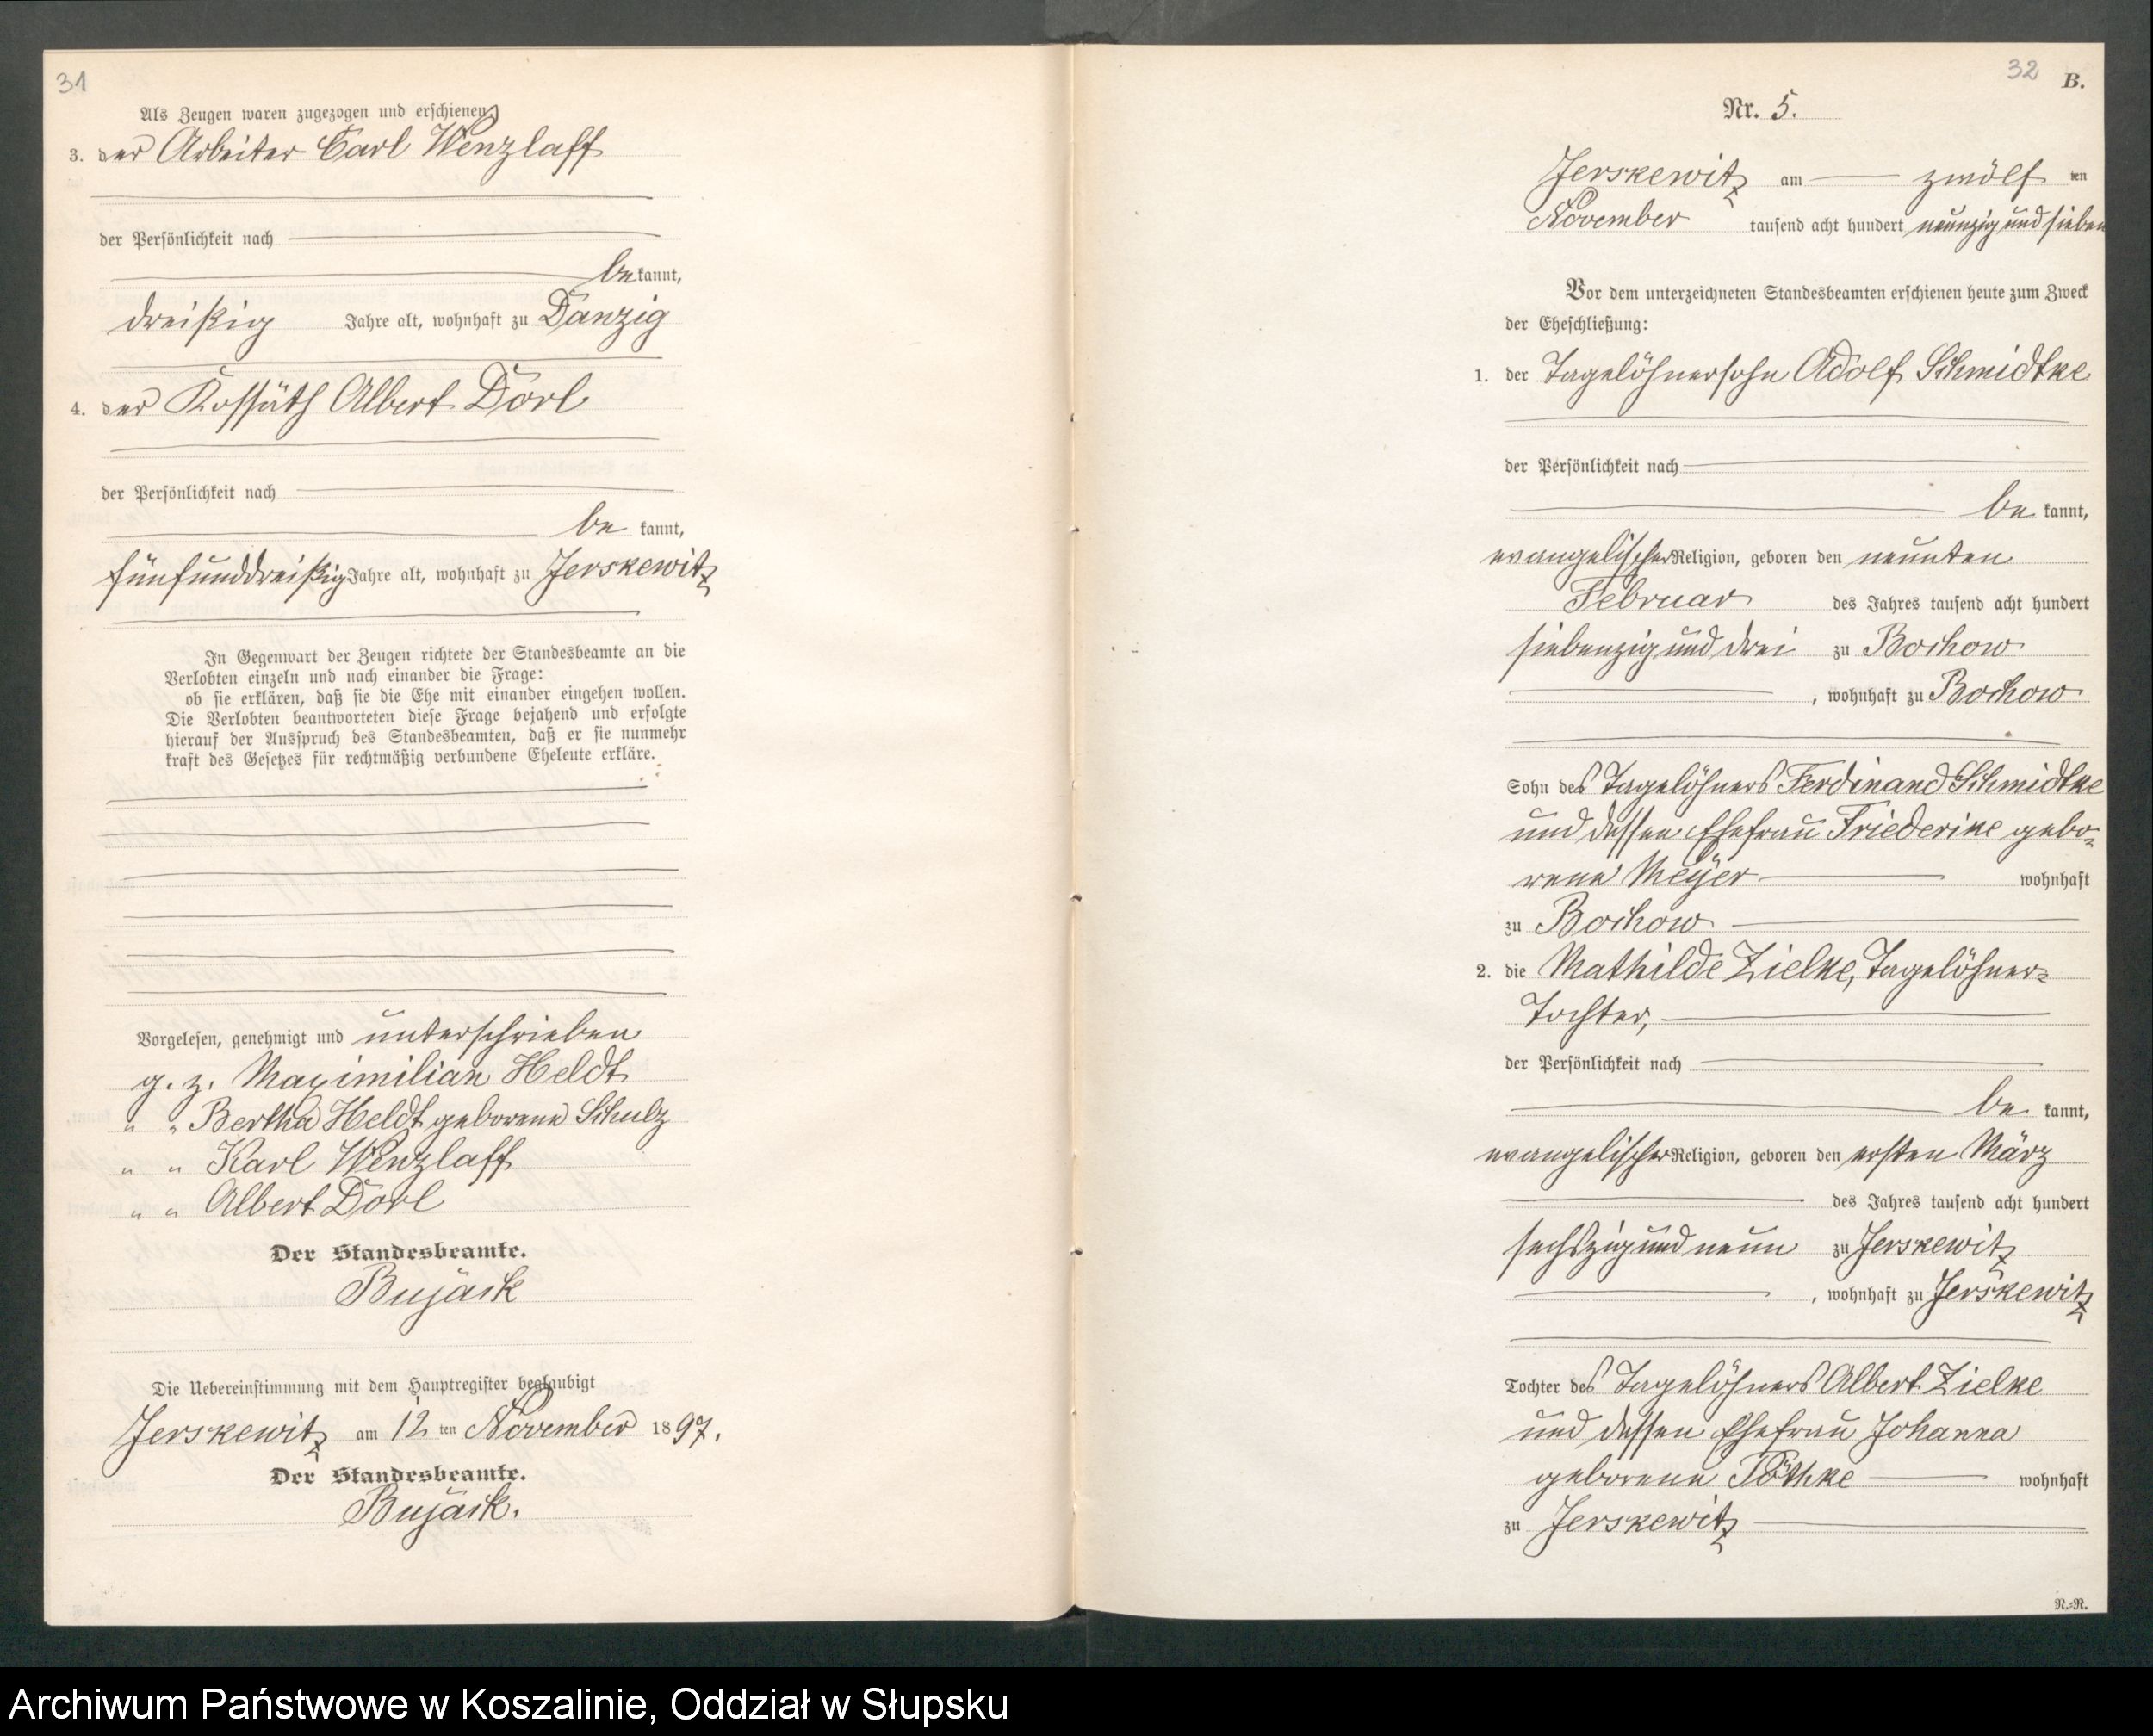 31
Als Zeugen waren zugezogen und erschienen:
3. der Arbeiter Carl Wenzlaff
der Persönlichkeit nach
be kannt,
dreißig Jahre alt, wohnhaft zu Danzig
4. der Kossäth Albert Dorl
der Persönlichkeit nach
be kannt,
fünfunddreißig Jahre alt, wohnhaft zu Jerskewitz
In Gegenwart der Zeugen richtete der Standesbeamte an die
Verlobten einzeln und nach einander die Frage:
ob sie erklären, daß sie die Ehe mit einander eingehen wollen.
Die Verlobten beantworteten diese Frage bejahend und erfolgte
hierauf der Ausspruch des Standesbeamten, daß er sie nunmehr
kraft des Gesetzes für rechtmäßig verbundene Eheleute erkläre.
Vorgelesen, genehmigt und unterschrieben
g. z. Maximilian Heldt
" " Bertha Heldt geborene Schulz
" " Karl Wenzlaff
" " Albert Dorl
Der Standesbeamte.
Bujack
Die Uebereinstimmung mit dem Hauptregister beglaubigt
Jerskewitz am 12 ten November 1897.
Der Standesbeamte.
Bujack.
32
B.
Nr. 5.
Jerskewitz am zwölf ten
November tausend acht hundert neunzig und sieben
Vor dem unterzeichneten Standesbeamten erschienen heute zum Zweck
der Eheschließung:
1. der Tagelöhnersohn Adolf Schmidtke
der Persönlichkeit nach
be kannt,
evangelischer Religion, geboren den neunten
Februar des Jahres tausend acht hundert
siebenzig und drei zu Bochow
, wohnhaft zu Bochow
Sohn des Tagelöhners Ferdinand Schmidtke
und dessen Ehefrau Friederike gebo-
rene Meyer wohnhaft
zu Bochow
2. die Mathilde Zielke, Tagelöhner-
Tochter,
der Persönlichkeit nach
be kannt,
evangelischer Religion, geboren den ersten März
des Jahres tausend acht hundert
sechszig und neun zu Jerskewitz
, wohnhaft zu Jerskewitz
Tochter des Tagelöhners Albert Zielke
und dessen Ehefrau Johanna
geborene Pöthke wohnhaft
zu Jerskewitz
R.-R.
Archiwum Państwowe w Koszalinie, Oddział w Słupsku